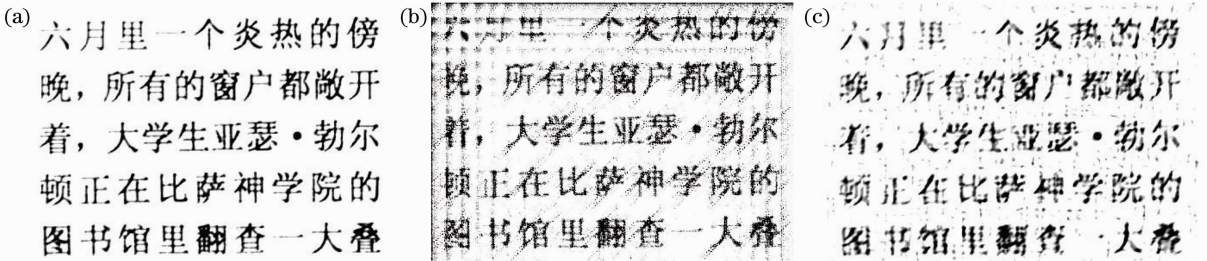 (a)
六月里一个炎热的傍
晚，所有的窗户都敞开
着，大学生亚瑟·勃尔
顿正在比萨神学院的
图书馆里翻查一大叠
(b)
六月里一个炎热的傍
晚，所有的窗户都敞开
着，大学生亚瑟·勃尔
顿正在比萨神学院的
图书馆里翻查一大叠
(c)
六月里 个炎热的傍
晚，所有的窗户都敞开
着，大学生亚瑟·勃尔
顿正在比萨神学院的
图书馆里翻查 大叠